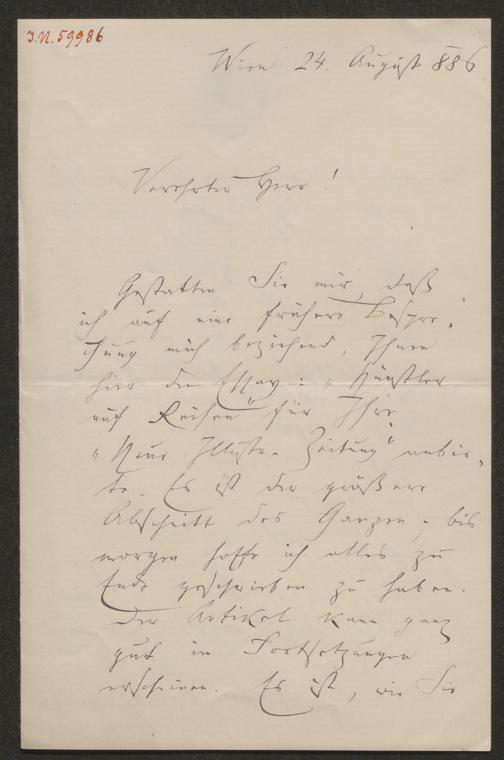 J.N. 59986
Wien 24. August 886
Verehrter Herr!
Gestatten Sie mir, daß
ich auf eine frühere Bespre-
chung mich beziehend, Ihnen
hier den Essay: „Künstler
auf Reisen" für Ihre
„Neue Illustr. Zeitung" anbie-
te. Es ist der größere
Abschnitt des Ganzen; bis
morgen hoffe ich alles zu
Ende geschrieben zu haben.
Der Artikel kann ganz
gut in Fortsetzungen
erscheinen. Es ist, wie Sie